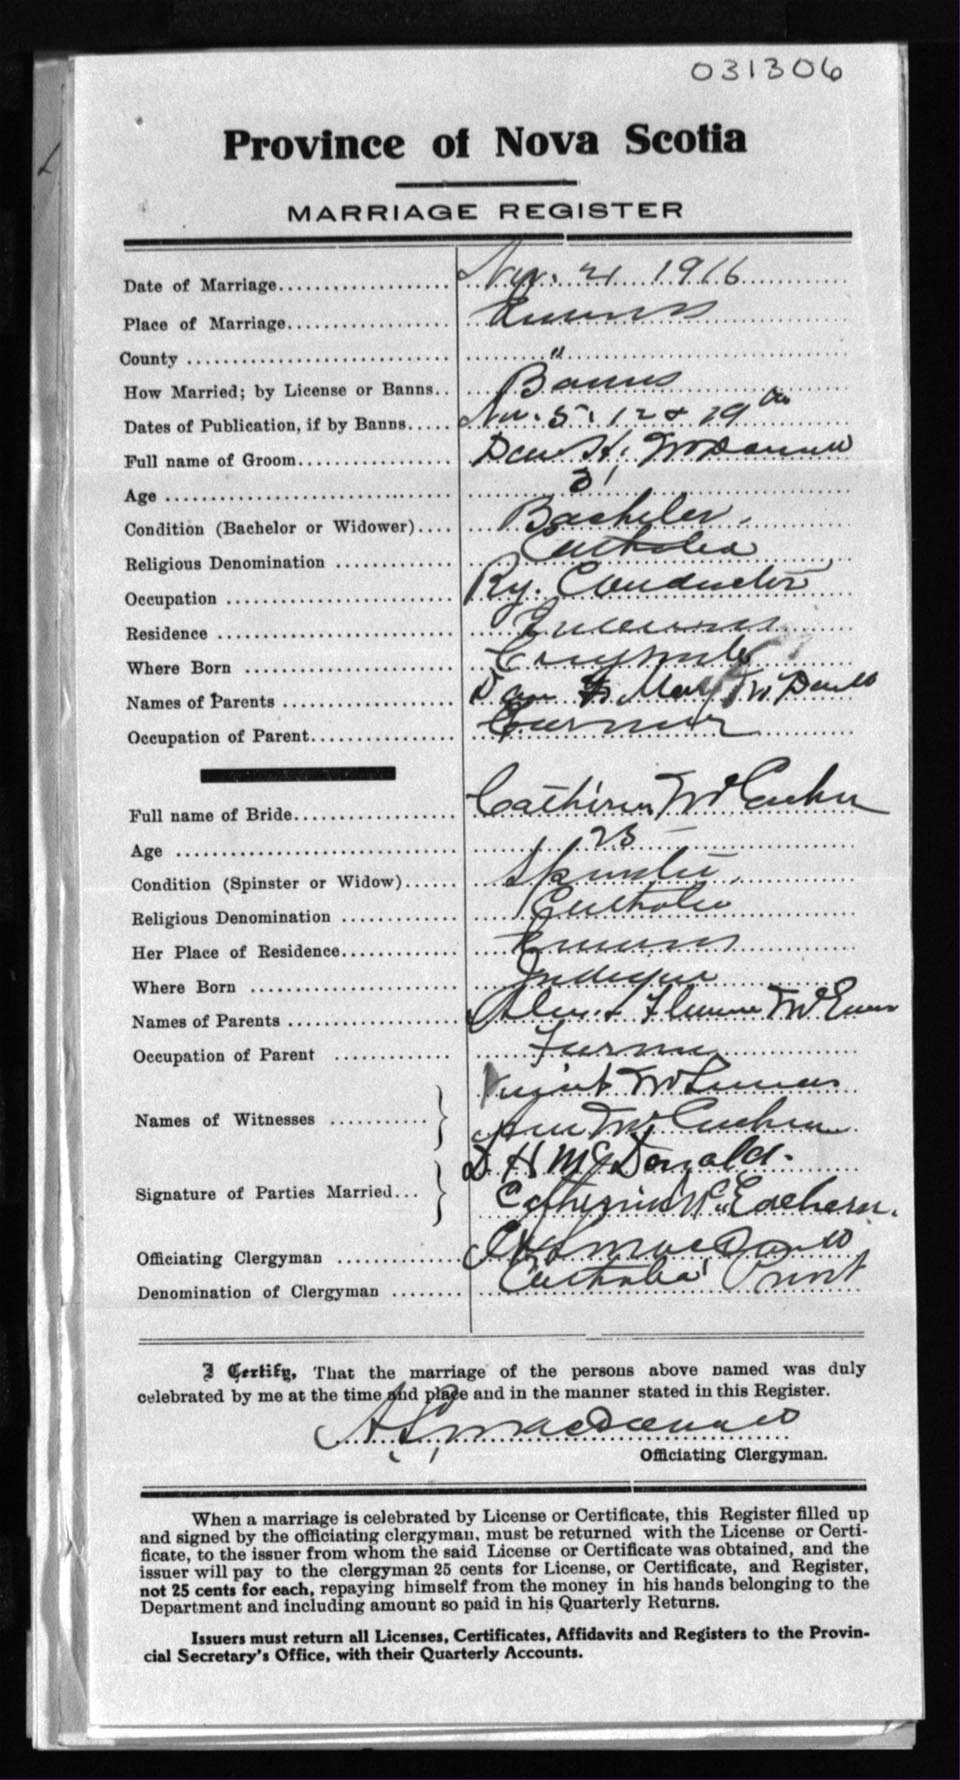 031306
Province of Nova Scotia
MARRIAGE REGISTER
Date of Marriage Nov. 21 1916
Place of Marriage
County "
How Married; by License or Banns Banns
Dates of Publication, if by Banns Nov. 5. 12 & 19th
Full name of Groom Dan H. McDonald
Age 31
Condition (Bachelor or Widower) Bachelor
Religious Denomination Catholic
Occupation Ry. Conductor
Residence
Where Born
Names of Parents Dan & Mary McDonald
Occupation of Parent Farmer
Full name of Bride Catherine McEachern
Age 25
Condition (Spinster or Widow) Spinster
Religious Denomination Catholic
Her Place of Residence
Where Born Judique
Names of Parents
Occupation of Parent Farmer
Names of Witnesses
Signature of Parties Married D H McDonald.
Catherine McEachern.
Officiating Clergyman MacDonald
Denomination of Clergyman Catholic Priest
I Certify, That the marriage of the persons above named was duly
celebrated by me at the time and place and in the manner stated in this Register.
MacDonald
Officiating Clergyman.
When a marriage is celebrated by License or Certificate, this Register filled up
and signed by the officiating clergyman, must be returned with the License or Certi-
ficate, to the issuer from whom the said License or Certificate was obtained, and the
issuer will pay to the clergyman 25 cents for License, or Certificate, and Register,
not 25 cents for each, repaying himself from the money in his hands belonging to the
Department and including amount so paid in his Quarterly Returns.
Issuers must return all Licenses, Certificates, Affidavits and Registers to the Provin-
cial Secretary's Office, with their Quarterly Accounts.